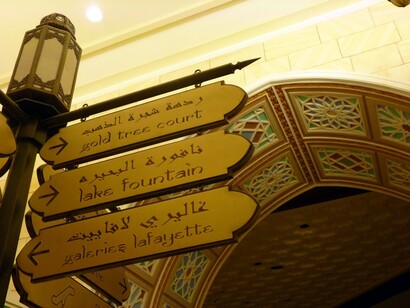 ردهة شجرة الذهب
gold tree court
نافورة البحيرة
lake fountain
غاليري لافاييت
galeries lafayette